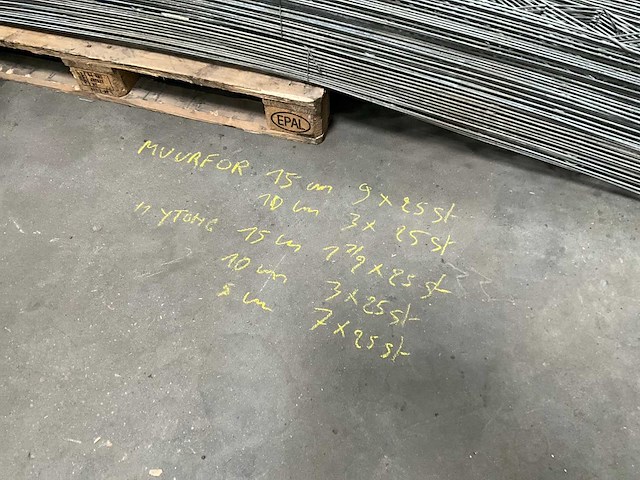 EPAL
MUURFOR 15 cm 9 x 25 st
10 cm 3 x 25 st
11 YTONG 15 cm 1 1/2 x 25 st
10 cm 3 x 25 st
5 cm 7 x 25 st